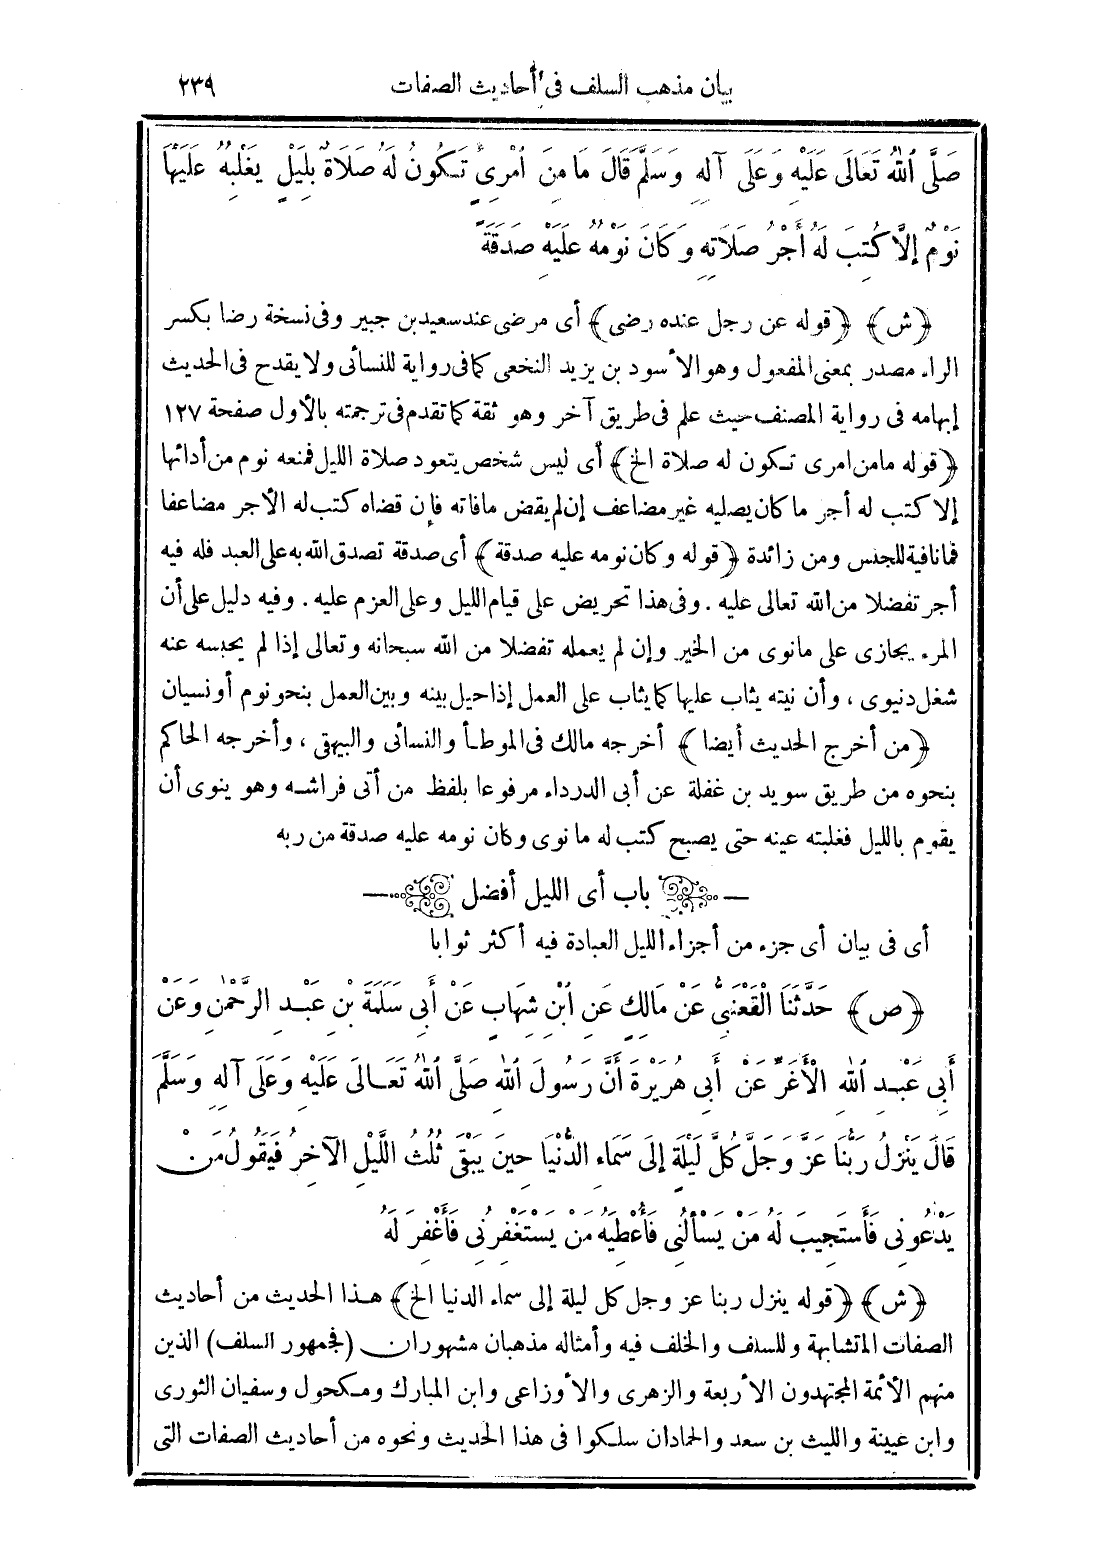 بيان مذهب السلف فى أحاديث الصفات ٢٣٩
صَلَّى اللهُ تَعَالَى عَلَيْهِ وَعَلَى آلِهِ وَسَلَّمَ قَالَ مَا مِنَ امْرِئٍ تَكُونُ لَهُ صَلَاةٌ بِلَيْلٍ يَغْلِبُهُ عَلَيْهَا
نَوْمٌ إِلَّا كُتِبَ لَهُ أَجْرُ صَلَاتِهِ وَكَانَ نَوْمُهُ عَلَيْهِ صَدَقَةً
﴿ش﴾ ﴿قوله عن رجل عنده رضى﴾ أى مرضى عند سعيد بن جبير وفى نسخة رضا بكسر
الراء مصدر بمعنى المفعول وهو الأسود بن يزيد النخعى كما فى رواية للنسائى ولا يقدح فى الحديث
إبهامه فى رواية المصنف حيث علم فى طريق آخر وهو ثقة كما تقدم فى ترجمته بالأول صفحة ١٢٧
﴿قوله مامن امرى تكون له صلاة الخ﴾ أى ليس شخص يتعود صلاة الليل فمنعه نوم من أدائها
إلا كتب له أجر ما كان يصليه غير مضاعف إن لم يقض مافاته فإن قضاه كتب له الأجر مضاعفا
فمانافية للجنس ومن زائدة ﴿قوله وكان نومه عليه صدقة﴾ أى صدقة تصدق الله به على العبد فله فيه
أجر تفضلا من الله تعالى عليه . وفى هذا تحريض على قيام الليل وعلى العزم عليه . وفيه دليل على أن
المرء يجازى على مانوى من الخير وإن لم يعمله تفضلا من الله سبحانه وتعالى إذا لم يحبسه عنه
شغل دنيوى ، وأن نيته يثاب عليها كما يثاب على العمل إذا حيل بينه وبين العمل بنحو نوم أو نسيان
﴿من أخرج الحديث أيضا﴾ أخرجه مالك فى الموطأ والنسائى والبيهقى ، وأخرجه الحاكم
بنحوه من طريق سويد بن غفلة عن أبى الدرداء مرفوعا بلفظ من أتى فراشه وهو ينوى أن
يقوم بالليل فغلبته عينه حتى يصبح كتب له مانوى وكان نومه عليه صدقة من ربه
باب أى الليل أفضل
أى فى بيان أى جزء من أجزاء الليل العبادة فيه أكثر ثوابا
﴿ص﴾ حَدَّثَنَا الْقَعْنَبِىُّ عَنْ مَالِكٍ عَنِ ابْنِ شِهَابٍ عَنْ أَبِى سَلَمَةَ بْنِ عَبْدِ الرَّحْمٰنِ وَعَنْ
أَبِى عَبْدِ اللهِ الْأَغَرِّ عَنْ أَبِى هُرَيْرَةَ أَنَّ رَسُولَ اللهِ صَلَّى اللهُ تَعَالَى عَلَيْهِ وَعَلَى آلِهِ وَسَلَّمَ
قَالَ يَنْزِلُ رَبُّنَا عَزَّ وَجَلَّ كُلَّ لَيْلَةٍ إِلَى سَمَاءِ الدُّنْيَا حِينَ يَبْقَى ثُلُثُ اللَّيْلِ الْآخِرُ فَيَقُولُ مَنْ
يَدْعُونِى فَأَسْتَجِيبَ لَهُ مَنْ يَسْأَلُنِى فَأُعْطِيَهُ مَنْ يَسْتَغْفِرُنِى فَأَغْفِرَ لَهُ
﴿ش﴾ ﴿قوله ينزل ربنا عز وجل كل ليلة إلى سماء الدنيا الخ﴾ هذا الحديث من أحاديث
الصفات المتشابهة وللسلف والخلف فيه وأمثاله مذهبان مشهوران (فجمهور السلف) الذين
منهم الأئمة المجتهدون الأربعة والزهرى والأوزاعى وابن المبارك ومكحول وسفيان الثورى
وابن عيينة والليث بن سعد والحمادان سلكوا فى هذا الحديث ونحوه من أحاديث الصفات التى